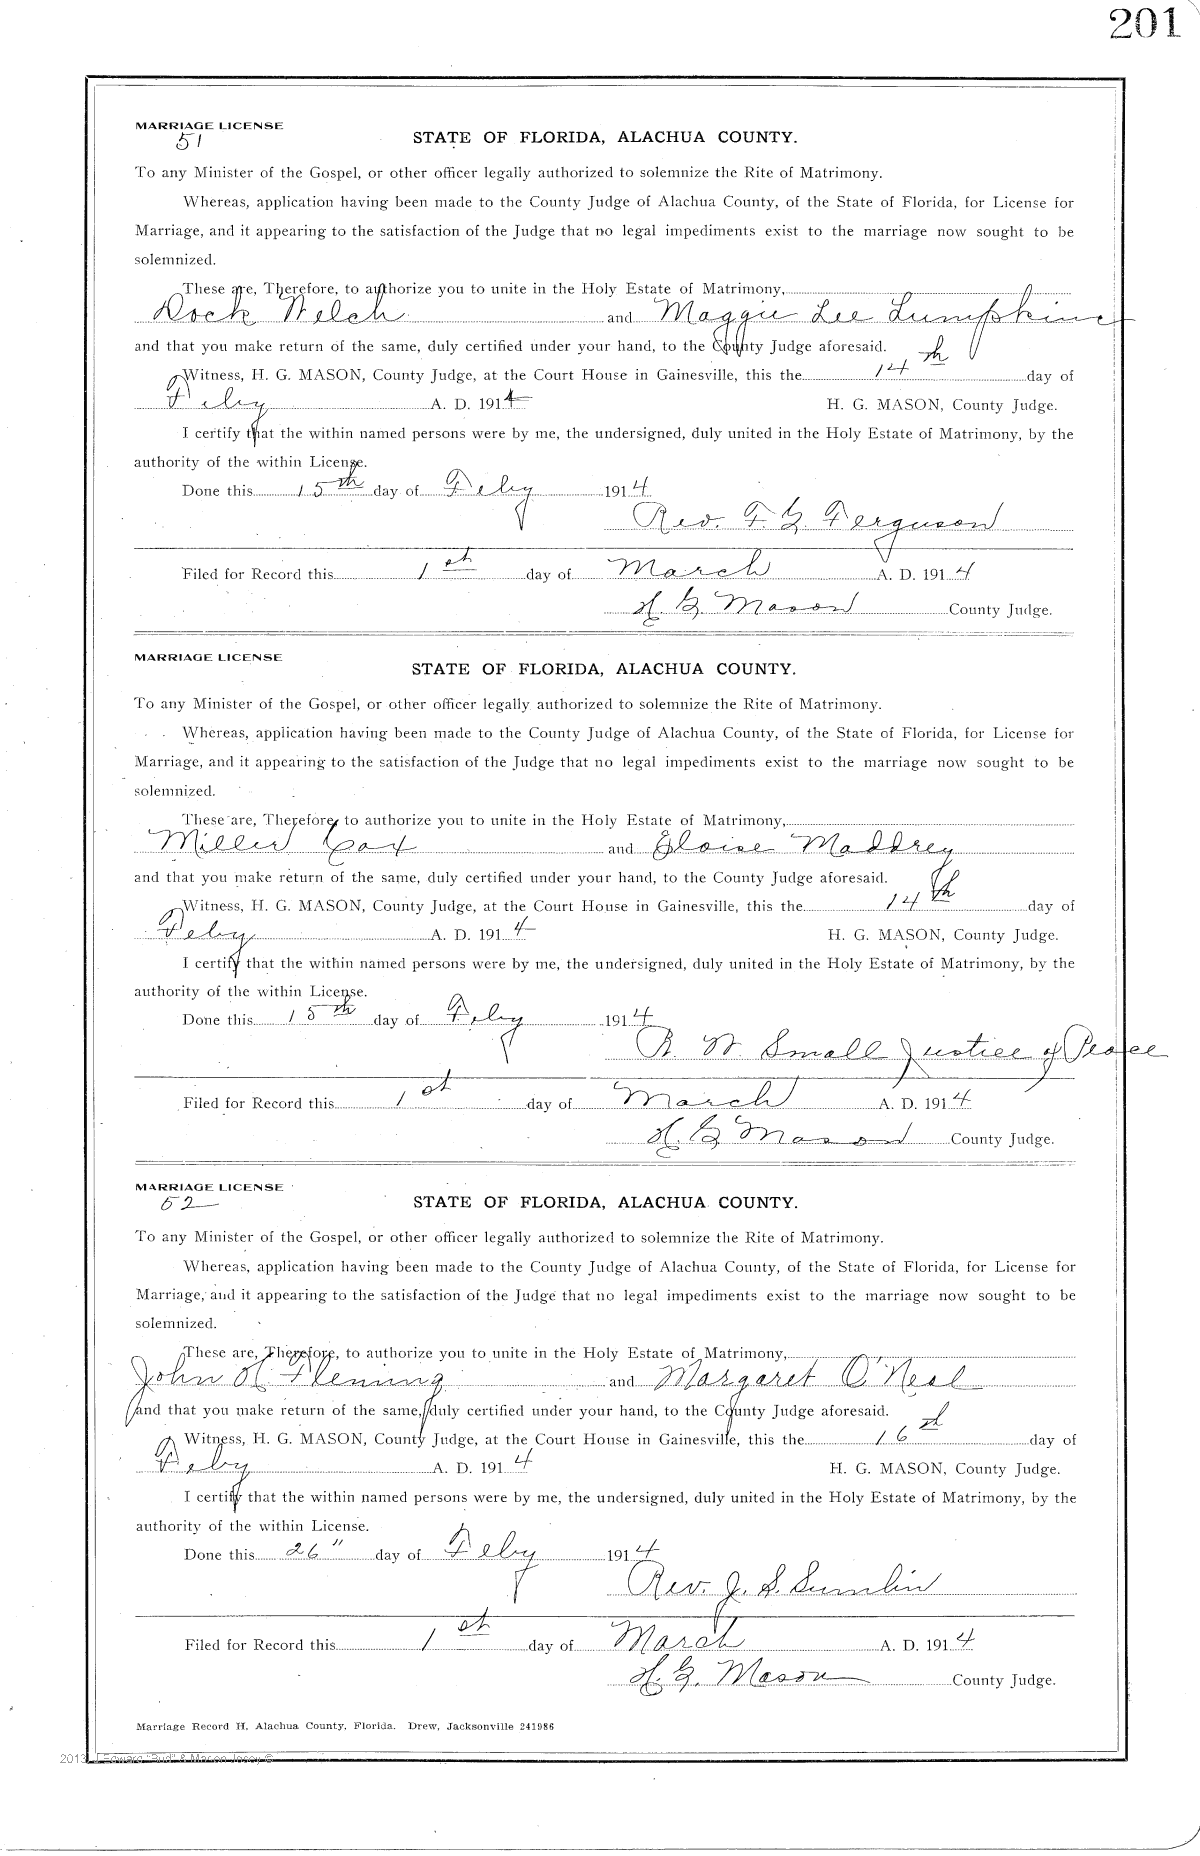 201
MARRIAGE LICENSE
51
STATE OF FLORIDA, ALACHUA COUNTY.
To any Minister of the Gospel, or other officer legally authorized to solemnize the Rite of Matrimony.
Whereas, application having been made to the County Judge of Alachua County, of the State of Florida, for License for
Marriage, and it appearing to the satisfaction of the Judge that no legal impediments exist to the marriage now sought to be
solemnized.
These are, Therefore, to authorize you to unite in the Holy Estate of Matrimony,
Dock Welch and Maggie Lee Lumpkins
and that you make return of the same, duly certified under your hand, to the County Judge aforesaid.
Witness, H. G. MASON, County Judge, at the Court House in Gainesville, this the 14th day of
Feby A. D. 1914 H. G. MASON, County Judge.
I certify that the within named persons were by me, the undersigned, duly united in the Holy Estate of Matrimony, by the
authority of the within License.
Done this 15th day of Feby 1914
Rev. F. G. Ferguson
Filed for Record this 1st day of March A. D. 1914
H. G. Mason County Judge.
MARRIAGE LICENSE
STATE OF FLORIDA, ALACHUA COUNTY.
To any Minister of the Gospel, or other officer legally authorized to solemnize the Rite of Matrimony.
Whereas, application having been made to the County Judge of Alachua County, of the State of Florida, for License for
Marriage, and it appearing to the satisfaction of the Judge that no legal impediments exist to the marriage now sought to be
solemnized.
These are, Therefore, to authorize you to unite in the Holy Estate of Matrimony,
Miller Cox and Eloise Maddrey
and that you make return of the same, duly certified under your hand, to the County Judge aforesaid.
Witness, H. G. MASON, County Judge, at the Court House in Gainesville, this the 14th day of
Feby A. D. 1914 H. G. MASON, County Judge.
I certify that the within named persons were by me, the undersigned, duly united in the Holy Estate of Matrimony, by the
authority of the within License.
Done this 15th day of Feby 1914
R. W. Small Justice of Peace
Filed for Record this 1st day of March A. D. 1914
H. G. Mason County Judge.
MARRIAGE LICENSE
52
STATE OF FLORIDA, ALACHUA COUNTY.
To any Minister of the Gospel, or other officer legally authorized to solemnize the Rite of Matrimony.
Whereas, application having been made to the County Judge of Alachua County, of the State of Florida, for License for
Marriage, and it appearing to the satisfaction of the Judge that no legal impediments exist to the marriage now sought to be
solemnized.
These are, Therefore, to authorize you to unite in the Holy Estate of Matrimony,
John H Fleming and Margaret O'Neal
and that you make return of the same, duly certified under your hand, to the County Judge aforesaid.
Witness, H. G. MASON, County Judge, at the Court House in Gainesville, this the 16 day of
Feby A. D. 1914 H. G. MASON, County Judge.
I certify that the within named persons were by me, the undersigned, duly united in the Holy Estate of Matrimony, by the
authority of the within License.
Done this 26" day of Feby 1914
Rev. J. S. Sumlin
Filed for Record this 1st day of March A. D. 1914
H. G. Mason County Judge.
Marriage Record H, Alachua County, Florida. Drew, Jacksonville 241986
2013 J Edward "Bud" &